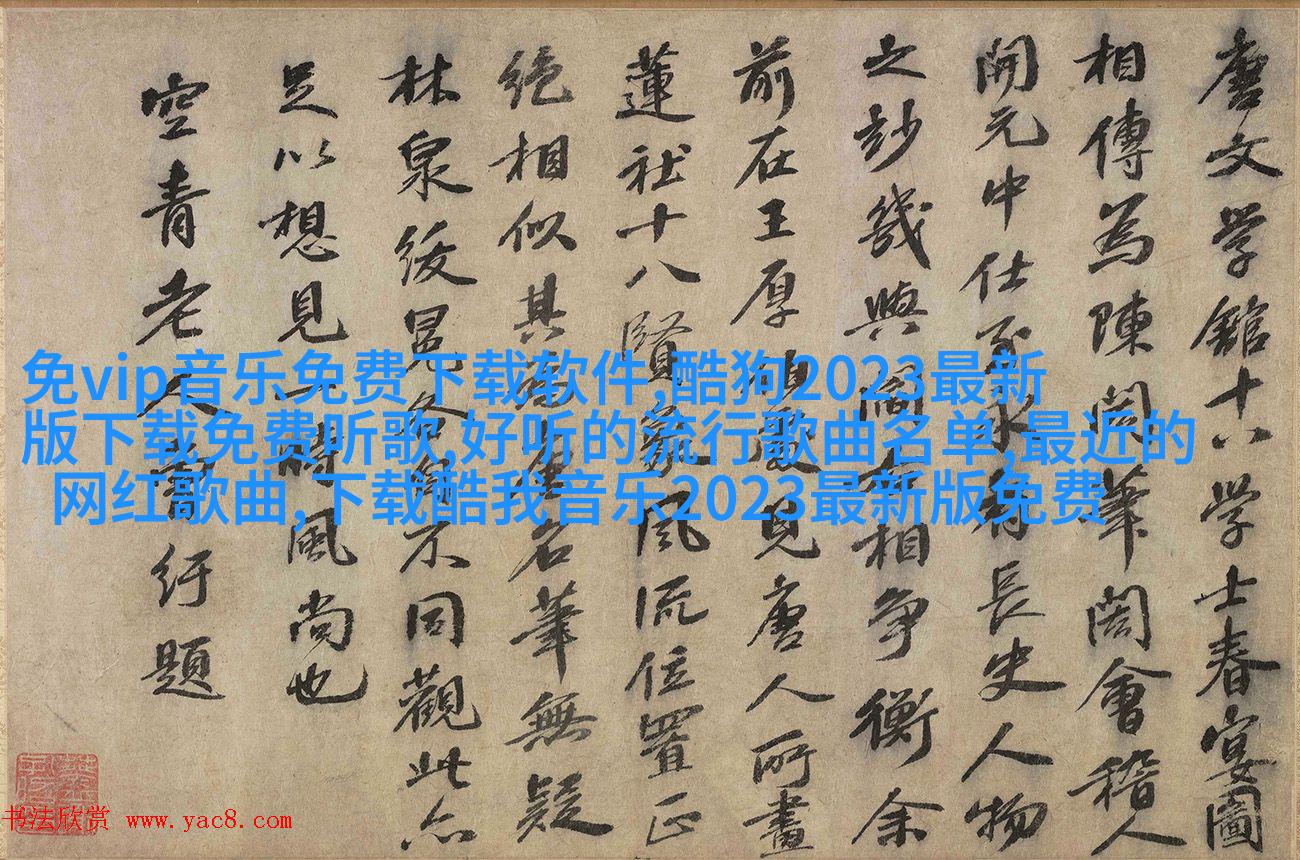 唐文学館十八学士春宴圖
相傳為陳閎筆閎會稽人
開元中仕至永長史人物
之妙幾與閻相争衡余
前在王厚見唐人所畫
蓮社十八賢象風流位置正
絶相似其為名筆無疑
林泉綬冕各不同觀此亦
足以想見一時風尚也
空青老人曾紆題
免vip音乐免费下载软件,酷狗2023最新
版下载免费听歌,好听的流行歌曲名单,最近的
网红歌曲,下载酷我音乐2023最新版免费
书法欣赏 www.yac8.com